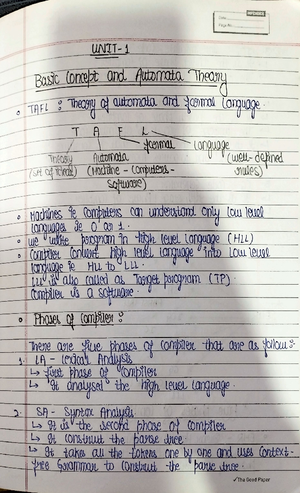 UNIT-1
Basic Concept and Automata Theory
TAFL : Theory of automata and formal language.
T A F L
Theory Automata formal Language
(Machine - Computers - software) (well-defined rules)
Machines ie Computers can understand only low level
languages ie 0 or 1.
we write program in High level language (HLL)
Compiler convert high level language into low level
language ie HLL to LLL.
LLL is also called as Target program (TP).
Compiler is a software.
Phases of Compiler :
There are five phases of Compiler that are as follow :
1. LA - lexical Analysis
↳ first phase of Compiler
↳ It analysed the high level language.
2. SA - Syntax Analysis
↳ It is the second phase of compiler
↳ It construct the parse tree
↳ It takes all the tokens one by one and uses Context-
free Grammar to construct the parse tree.
✓The Good Paper